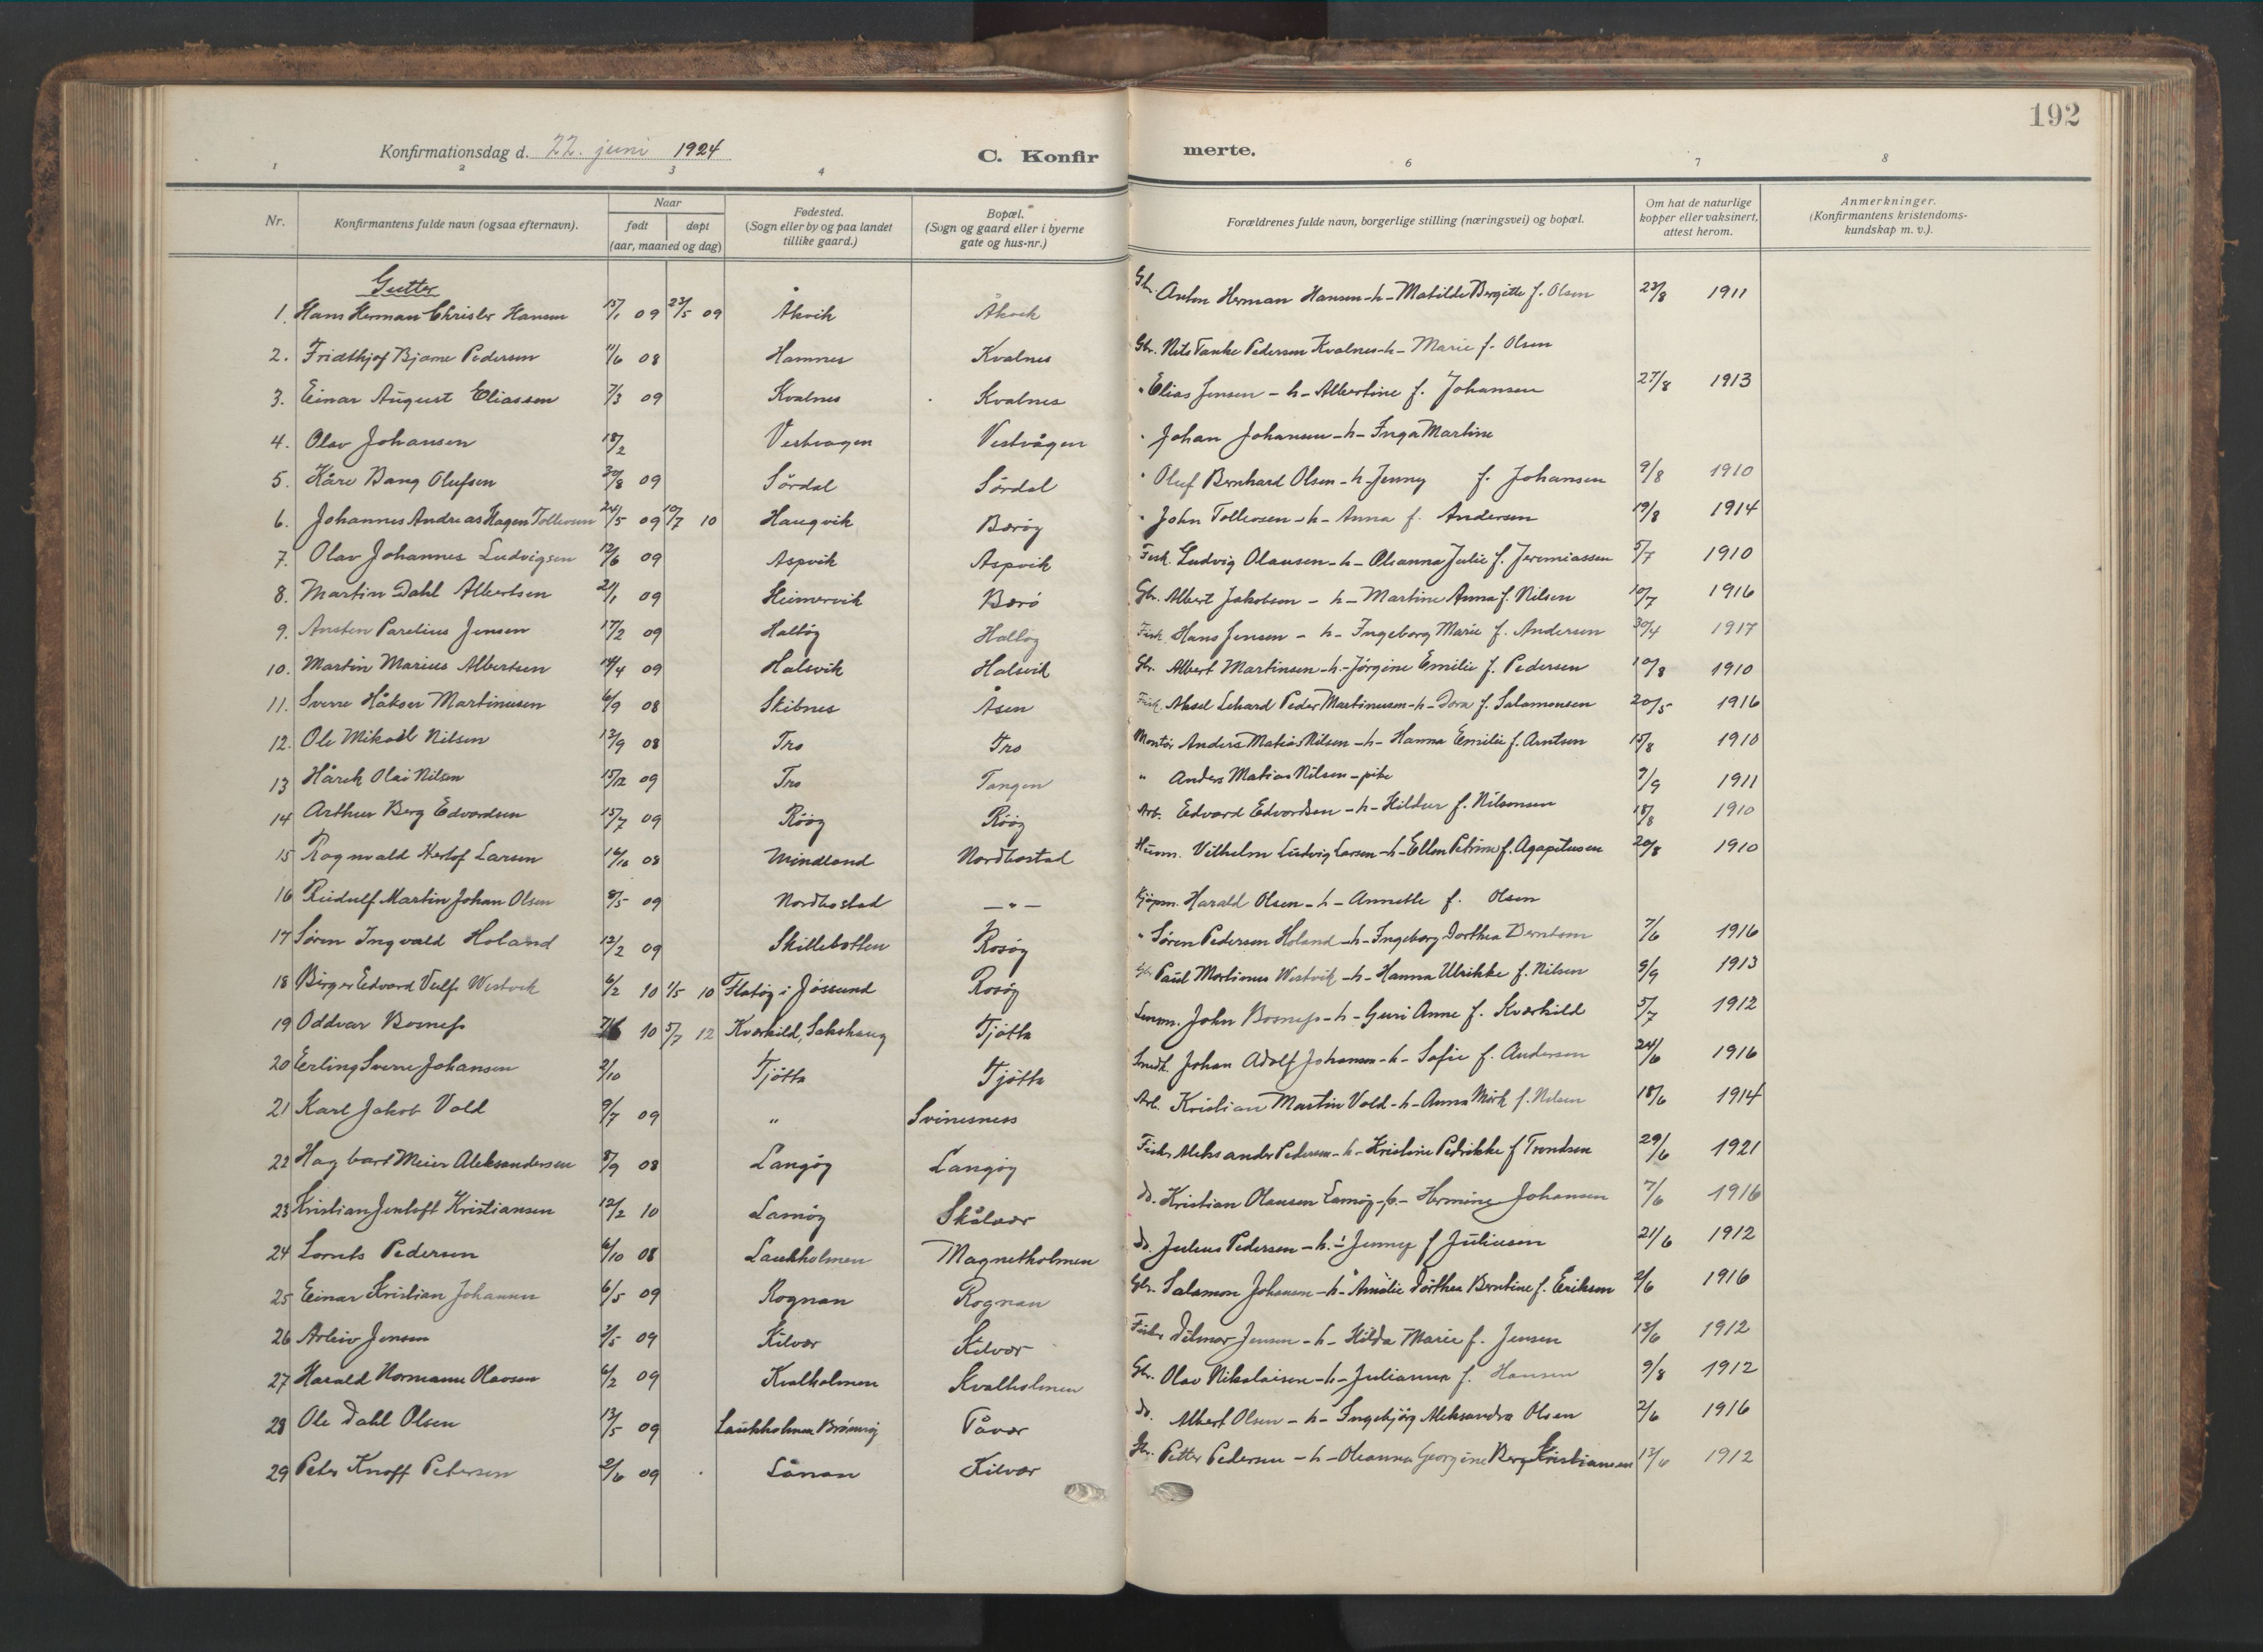 192
Konfirmationsdag d. 22. juni 1924 C. Konfirmerte.
1 2 3 4 6 7 8
Nr. Konfirmantens fulde navn (ogsaa efternavn). Naar født døpt (aar, maaned og dag) Fødested. (Sogn eller by og paa landet tillike gaard.) Bopæl. (Sogn og gaard eller i byerne gate og hus-nr.) Forældrenes fulde navn, borgerlige stilling (næringsvei) og bopæl. Om hat de naturlige kopper eller vaksinert, attest herom. Anmerkninger. (Konfirmantens kristendoms-kundskap m. v.).
Gutter
1. Hans Herman Christer Hansen 15/1 09 23/5 09 Åkvik Åkvik Gbr. Anton Herman Hansen -h- Matilde Bergitte f. Olsen 23/8 1911
2. Fridthjof Bjarne Pedersen 11/6 08 Hamnes Kvalnes Gbr. Nils Tanke Pedersen Kvalnes -h- Marie f. Olsen
3. Einar August Eliassen 7/3 09 Kvalnes Kvalnes " Elias Jensen -h- Albertine f. Johansen 27/8 1913
4. Olav Johansen 18/2 Vestvagen Vestvågen " Johan Johansen -h- Inga Martine
5. Kåre Bang Olufsen 30/8 09 Sørdal Sørdal " Oluf Bernhard Olsen -h- Jenny f. Johansen 9/8 1910
6. Johannes Andreas Hagen Tollevsen 24/5 09 10/7 10 Haugvik Bærøy " John Tollevsen -h- Anna f. Andersen 19/8 1914
7. Olav Johannes Ludvigsen 12/6 09 Aspvik Aspvik Fisk. Ludvig Olausen -h- Oleanna Julie f. Jeremiassen 5/7 1910
8. Martin Dahl Albertsen 21/1 09 Heimervik Bærø Gbr. Albert Jakobsen -h- Martine Anna f. Nilsen 10/7 1916
9. Ansten Parelius Jensen 17/2 09 Haltøy Haltøy Fisk. Hans Jensen -h- Ingeborg Marie f. Andersen 30/4 1917
10. Martin Marius Albertsen 14/4 09 Halsvik Halsvik Gbr. Albert Martinsen -h- Jørgine Emilie f. Pedersen 10/8 1910
11. Sverre Håkon Martinusen 6/9 08 Skibnes Åsen Fisk. Aksel Lehard Peder Martinusen -h- Dora f. Salamonsen 20/5 1916
12. Ole Mikael Nilsen 13/9 08 Tro Tro Montør Anders Matias Nilsen -h- Hanna Emilie f. Arntsen 15/8 1910
13 Hårek Olai Nilsen 15/12 09 Tro Tangen " Anders Matias Nilsen - pike 9/9 1911
14 Arthur Berg Edvardsen 15/7 09 Røøy Røøy Arb. Edvard Edvardsen -h- Hildur f. Nilsensen 18/8 1910
15 Ragnvald Herlof Larsen 16/10 08 Mindland Nordbostad Husm. Vilhelm Ludvig Larsen -h- Ellen Petrine f. Agapitusen 20/8 1910
16 Reidulf Martin Johan Olsen 8/5 09 Nordbostad — " — Kjøpm. Harald Olsen -h- Annette f. Olsen
17 Søren Ingvald Holand 12/2 09 Skillebotten Rosøy " Søren Pedersen Holand -h- Ingeborg Dorthea Berntsen 7/6 1916
18 Birger Edvard Vulf Westvik 6/2 10 1/5 10 Flatøy i Jøssund Rosøy Gbr Paul Martinus Westvik -h- Hanna Ulrikke f. Nilsen 9/9 1913
19 Oddvar Bosness 7/6 10 5/7 12 Kvarhild, Sakshaug Tjøtta Lensm. John Bosness -h- Guri Anne f. Kvarhild 5/7 1912
20 Erling Sverre Johansen 2/10 Tjøtta Tjøtta Smedt. Johan Adolf Johansen -h- Sofie f. Andersen 24/6 1916
21 Karl Jakob Vold 9/7 09 " Svinesness Arb. Kristian Martin Vold -h- Anna Mørk f. Nilsen 18/6 1914
22 Hagbart Meier Aleksandersen 8/9 08 Langøy Langøy Fisker Aleksander Pedersen -h- Kristine Pedrikke f Trondsen 29/6 1921
23 Kristian Jentoft Kristiansen 12/2 10 Lamøy Skålvær Do. Kristian Olausen Lamøy -h- Hermine Johansen 7/6 1916
24 Lornts Pedersen 6/10 08 Laukholmen Magnetholmen Do. Julius Pedersen -h- Jenny f Juliusen 21/6 1912
25 Einar Kristian Johansen 6/5 09 Rognan Rognan Gbr. Salamon Johansen -h- Amalie Dorthea Berntine f. Eriksen 2/6 1916
26 Arleiv Jensen 3/5 09 Kilvær Kilvær Fisker Dilmar Jensen -h- Hilda Marie f. Jensen 13/6 1912
27 Harald Normann Olavsen 6/2 09 Kvalholmen Kvalholmen Gbr. Olav Nikolaisen -h- Julianna f. Hansen 9/8 1912
28 Ole Dahl Olsen 13/5 09 Laukholmen Brønnøy Påvær Do. Albert Olsen -h- Ingebjørg Aleksandra Olsen 2/6 1916
29 Peter Knoff Petersen 2/6 09 Lånan Kilvær Gbr. Petter Pedersen -h- Oleanna Georgine Berg Kristiansen 13/6 1912